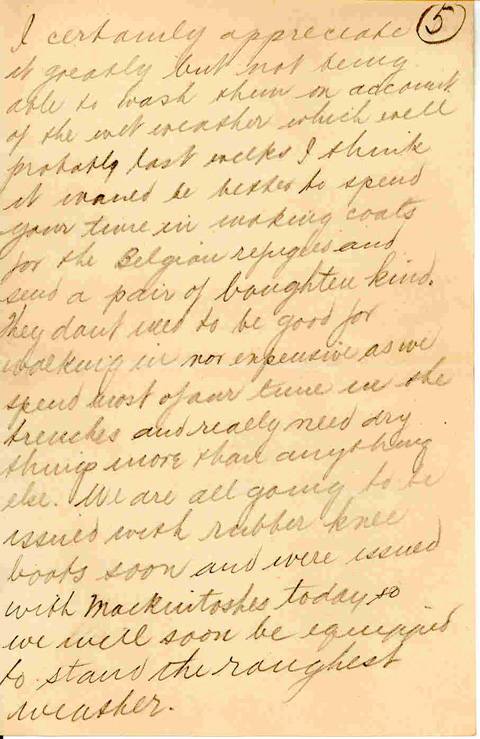 5
I certainly appreciate
it greatly but not being
able to wash them on account
of the wet weather which will
probably last weeks I think
it would be better to spend
your time in making coats
for the Belgian refugees and
send a pair of boughten kind.
They dont need to be good for
walking in nor expensive as we
spend most of our time in the
trenches and really need dry
things more than anything
else. We are all going to be
issued with rubber knee
boots soon and were issued
with Mackintoshes today so
we will soon be equipped
to stand the roughest
weather.